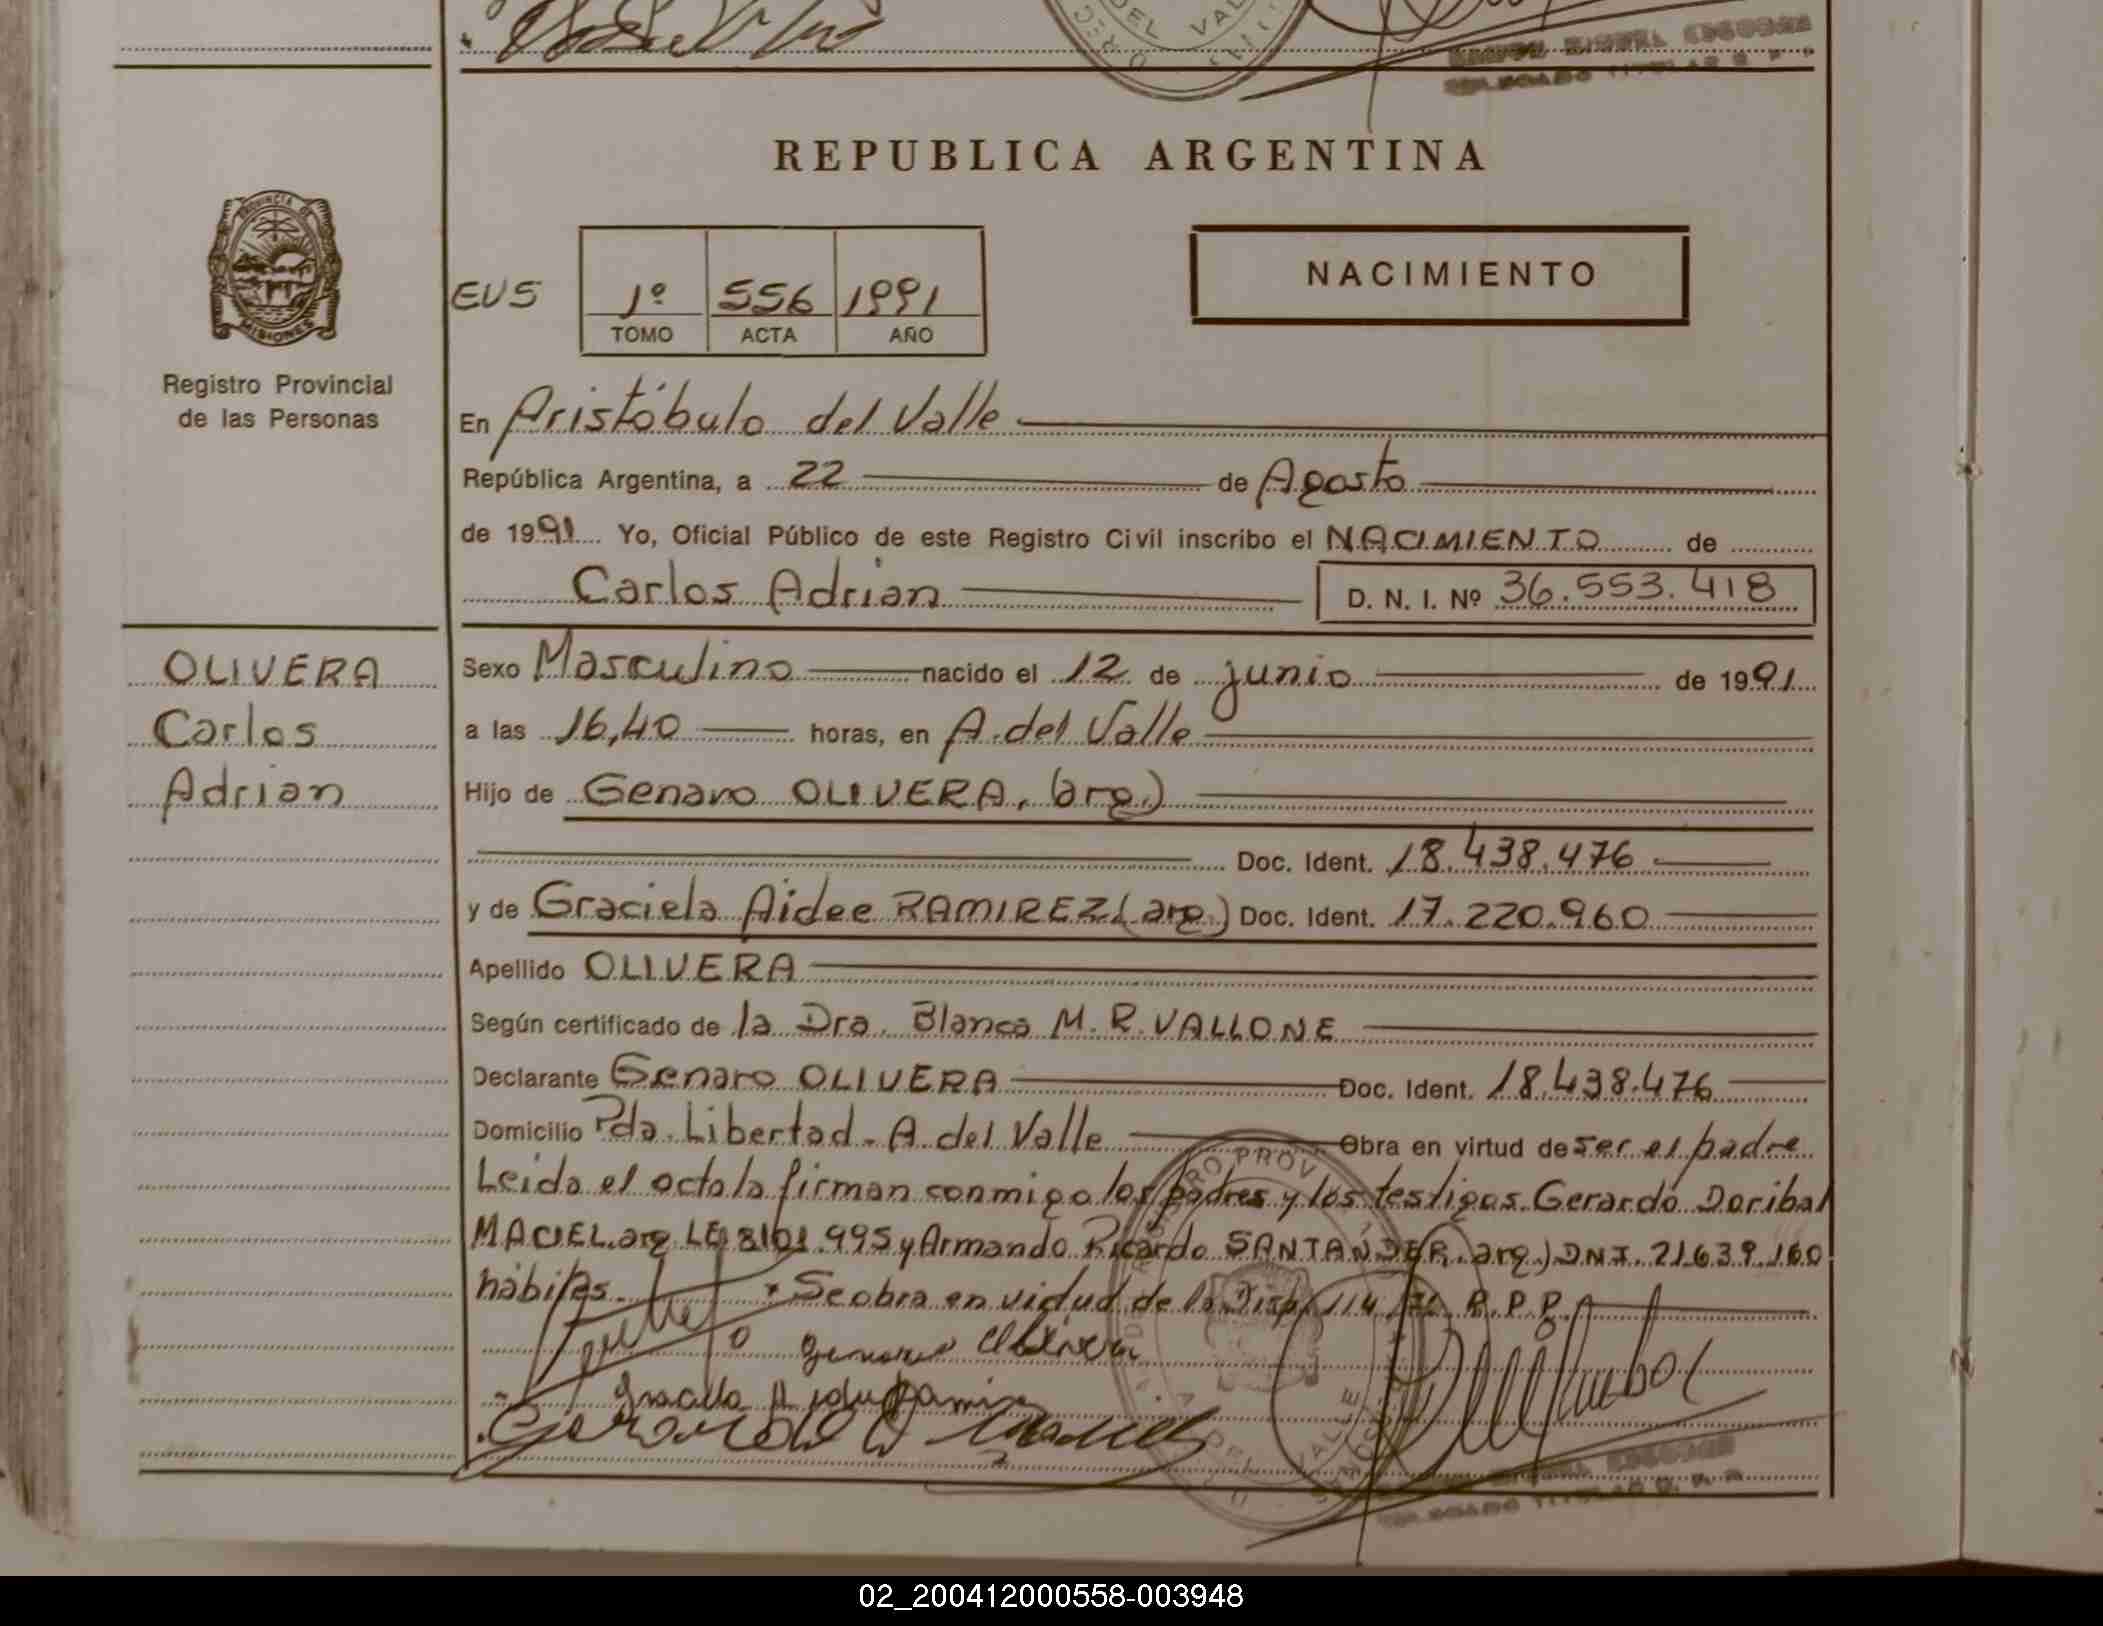 REPUBLICA ARGENTINA
PROVINCIA DE
MISIONES
Registro Provincial
de las Personas
EUS
1º 556 1991
TOMO ACTA AÑO
NACIMIENTO
En Aristóbulo del Valle
República Argentina, a 22 de Agosto
de 1991 Yo, Oficial Público de este Registro Civil inscribo el NACIMIENTO de
Carlos Adrian D. N. I. Nº 36.553.418
OLIVERA
Carlos
Adrian
Sexo Masculino nacido el 12 de junio de 1991
a las 16,40 horas, en A. del Valle
Hijo de Genaro OLIVERA, (arg.)
Doc. Ident. 18.438.476
y de Graciela Aidee RAMIREZ (arg.) Doc. Ident. 17.220.960
Apellido OLIVERA
Según certificado de la Dra. Blanca M. R. VALLONE
Declarante Genaro OLIVERA Doc. Ident. 18.438.476
Domicilio Pda. Libertad - A. del Valle Obra en virtud de ser el padre
Leida el acta la firman conmigo los padres y los testigos Gerardo Doribal
MACIEL. arg. LE 8101.995 y Armando Ricardo SANTANDER. arg.) DNI. 21.639.160
hábiles. Se obra en virtud de la Disp. 114 R.P.P.
Genaro Olivera
02_200412000558-003948